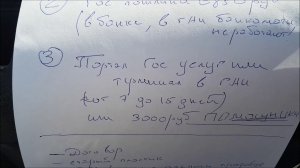 ② Гос пошлина
(в банке, в ГАИ банкоматы
не работают)
③ Портал Гос услуг или
терминал в ГАИ
(от 7 до 15 дней)
или 3000 руб помощник
— Договор